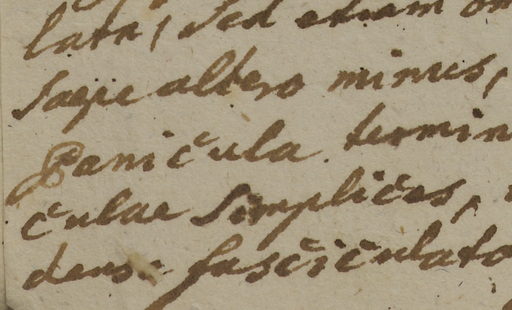 lata, sed etiam om
saepe altero minus,
Panicula termin
culae simplices,
dense fasciculato